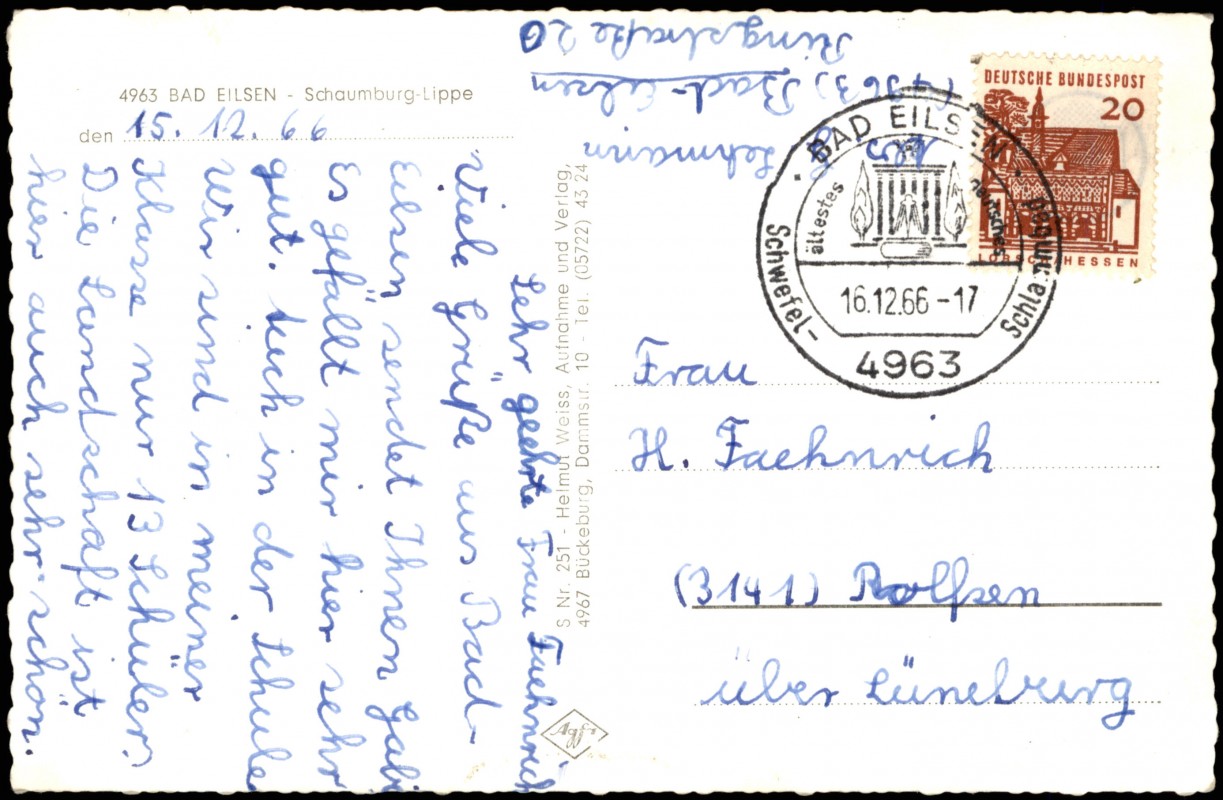 4963 BAD EILSEN - Schaumburg-Lippe
den 15. 12. 66
Sehr geehrte Frau Faehnrich
Viele Grüße aus Bad-
Eilsen sendet Ihnen Gabi
Es gefällt mir hier sehr
gut. Auch in der Schule.
Wir sind in meiner
Klasse nur 13 Schüler.
Die Landschaft ist
hier auch sehr schön.
S Nr. 251 - Helmut Weiss, Aufnahme und Verlag,
4967 Bückeburg, Dammstr. 10 - Tel. (05722) 43 24
Agfa
Lehmann
(4963) Bad-Eilsen
Ringstraße 20
DEUTSCHE BUNDESPOST
20
LORSCH/HESSEN
BAD EILSEN
ältestes deutsches
Schwefel-
Schlammbad
16.12.66-17
4963
Frau
H. Faehnrich
(3141) Rolfsen
über Lüneburg